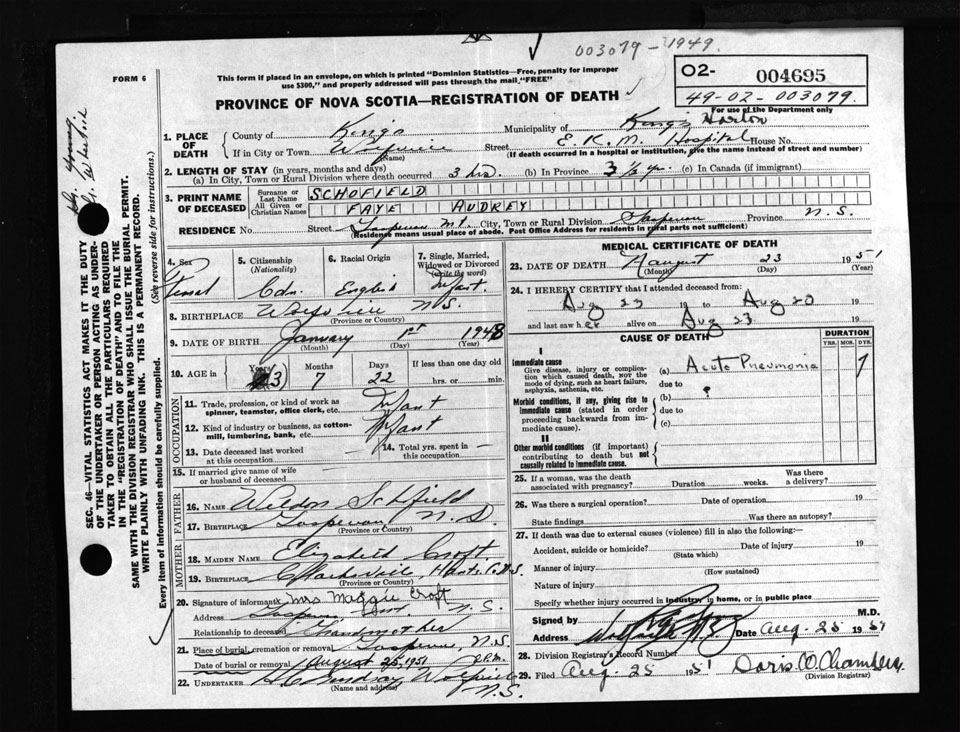 003079-1949.
FORM 6
This form if placed in an envelope, on which is printed "Dominion Statistics—Free, penalty for improper
use $300," and properly addressed will pass through the mail, "FREE"
O2- 004695
49-02-003079.
For use of the Department only
PROVINCE OF NOVA SCOTIA—REGISTRATION OF DEATH
1. PLACE OF DEATH
County of Kings Municipality of Kings Horton
If in City or Town Street E. K. M. Hospital House No.
(Name) (If death occurred in a hospital or institution, give the name instead of street and number)
2. LENGTH OF STAY (in years, months and days)
(a) In City, Town or Rural Division where death occurred 3 hrs. (b) In Province 3 ½ yr. (c) In Canada (if immigrant)
3. PRINT NAME OF DECEASED
Surname or Last Name SCHOFIELD
All Given or Christian Names FAYE AUDREY
RESIDENCE No. Street Gaspereau Mt. City, Town or Rural Division Gaspereau Province N.S.
(Residence means usual place of abode. Post Office Address for residents in rural parts not sufficient)
4. Sex
5. Citizenship (Nationality) Cdn.
6. Racial Origin English
7. Single, Married, Widowed or Divorced (write the word) Infant.
8. BIRTHPLACE Wolfville N.S.
(Province or Country)
9. DATE OF BIRTH January 1st 1948
(Month) (Day) (Year)
10. AGE in Years 3 Months 7 Days 22 If less than one day old hrs. or min.
OCCUPATION
11. Trade, profession, or kind of work as spinner, teamster, office clerk, etc. Infant
12. Kind of industry or business, as cotton-mill, lumbering, bank, etc. Infant
13. Date deceased last worked at this occupation
14. Total yrs. spent in this occupation
15. If married give name of wife or husband of deceased
FATHER
16. NAME Weldon Schofield
17. BIRTHPLACE Gaspereau N.S.
(Province or Country)
MOTHER
18. MAIDEN NAME Elizabeth Croft
19. BIRTHPLACE Hants Co. N.S.
(Province or Country)
20. Signature of informant Mrs Maggie Croft
Address Gaspereau N.S.
Relationship to deceased Grandmother
21. Place of burial, cremation or removal Gaspereau, N.S.
Date of burial or removal August 25, 1951
22. UNDERTAKER Wolfville
(Name and address) N.S.
MEDICAL CERTIFICATE OF DEATH
23. DATE OF DEATH August 23 1951
(Month) (Day) (Year)
24. I HEREBY CERTIFY that I attended deceased from:
Aug 23 19 to Aug 20 19
and last saw her alive on Aug 23 19
CAUSE OF DEATH
DURATION
YRS. MOS. DYS.
I
Immediate cause
Give disease, injury or complication which caused death, NOT the mode of dying, such as heart failure, asphyxia, asthenia, etc.
(a) Acute Pneumonia
due to
Morbid conditions, if any, giving rise to immediate cause (stated in order proceeding backwards from immediate cause).
(b) ?
due to
(c)
II
Other morbid conditions (if important) contributing to death but not causally related to immediate cause.
25. If a woman, was the death associated with pregnancy? Duration weeks. Was there a delivery?
26. Was there a surgical operation? Date of operation 19
State findings Was there an autopsy?
27. If death was due to external causes (violence) fill in also the following:—
Accident, suicide or homicide? Date of injury 19
(State which)
Manner of injury
(How sustained)
Nature of injury
Specify whether injury occurred in industry, in home, or in public place
Signed by M.D.
Address Wolfville N.S. Date Aug. 25 1951
28. Division Registrar's Record Number
29. Filed Aug. 25 1951 Doris W. Chambers
(Division Registrar)
SEC. 46—VITAL STATISTICS ACT MAKES IT THE DUTY
OF THE UNDERTAKER OR PERSON ACTING AS UNDER-
TAKER TO OBTAIN ALL THE PARTICULARS REQUIRED
IN THE "REGISTRATION OF DEATH" AND TO FILE THE
SAME WITH THE DIVISION REGISTRAR WHO SHALL ISSUE THE BURIAL PERMIT.
WRITE PLAINLY WITH UNFADING INK. THIS IS A PERMANENT RECORD.
Every item of information should be carefully supplied. (See reverse side for instructions.)